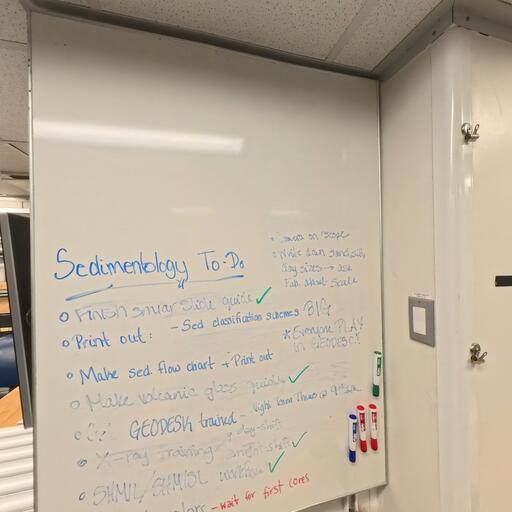 Sedimentology To-Do
Finish smear slide guide ✓
Print out: - Sed classification schemes BIG
Make sed. flow chart + Print out
Make volcanic glass guide ✓
GEODESK trained - Night Team Thurs @
X-ray training - night-shift ✓
day-shift
SHMIL/SHMSL workflow ✓
- wait for first cores
on scope
Write down sand, silt,
clay sizes → ask
Fab about Scale
* Everyone PLAY
in GEODESC!